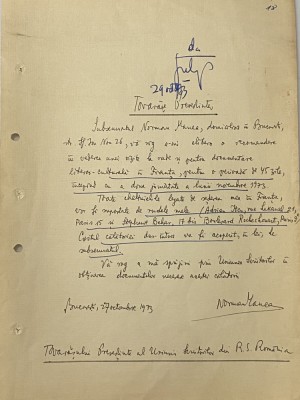 18
da
29 oct 73
Tovarășe Președinte,
Subsemnatul Norman Manea, domiciliat în București,
26, vă rog a-mi elibera o recomandare
în vederea unei vizite la rude și pentru documentare
literar-culturală în Franța, pentru o perioadă de 45 zile,
începînd cu a doua jumătate a lunii noiembrie 1973.
Toate cheltuielile legate de șederea mea în Franța
vor fi suportate de rudele mele (Adrian
Paris 15 și Stephana 18 bis
Costul călătoriei dus-întors va fi acoperit, în lei, de
subsemnatul.
Vă rog a mă sprijini prin Uniunea Scriitorilor în
obținerea documentelor necesare acestei călătorii.
București, 27 octombrie 1973
Norman Manea
Tovarășului Președinte al Uniunii Scriitorilor din R.S. România